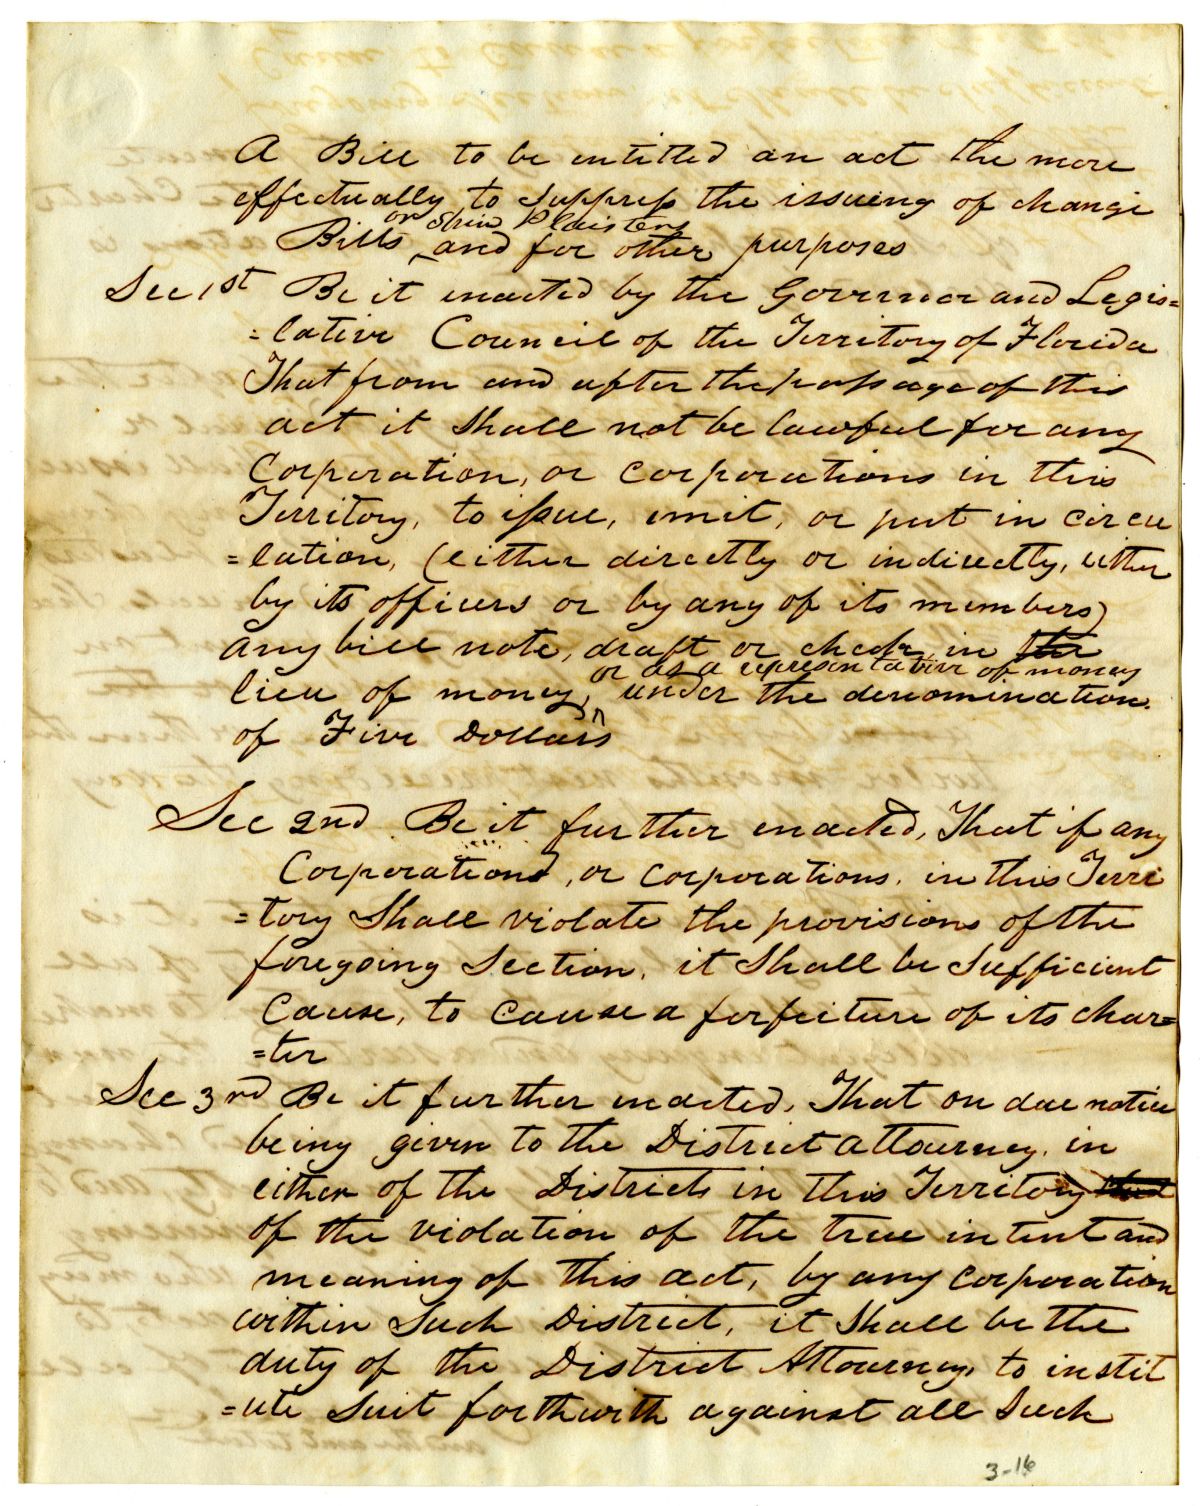 A Bill to be entitled an act the more
effectually to suppress the issuing of change
or Shin Plaisters
Bills, and for other purposes
Sec 1st Be it enacted by the Governor and Legis=
=lative Council of the Territory of Florida
That from and after the passage of this
act it Shall not be lawful for any
Corporation, or corporations in this
Territory, to issue, emit, or put in circu
=lation, (either directly or indirectly, either
by its officers or by any of its members)
any bill note, draft or check, in the
or as a representative of money
lieu of money, under the denomination
of Five Dollars
Sec 2nd Be it further enacted, That if any
Corporation, or corporations, in this Terri
=tory Shall violate the provisions of the
foregoing Section, it Shall be Sufficient
Cause, to cause a forfeiture of its char=
=ter
Sec 3rd Be it further enacted, That on due notice
being given to the District Attourney, in
either of the Districts in this Territory
of the violation of the true intent and
meaning of this act, by any corporation
within Such District, it Shall be the
duty of the District Attourney, to instit
=ute Suit forthwith against all Such
3-16